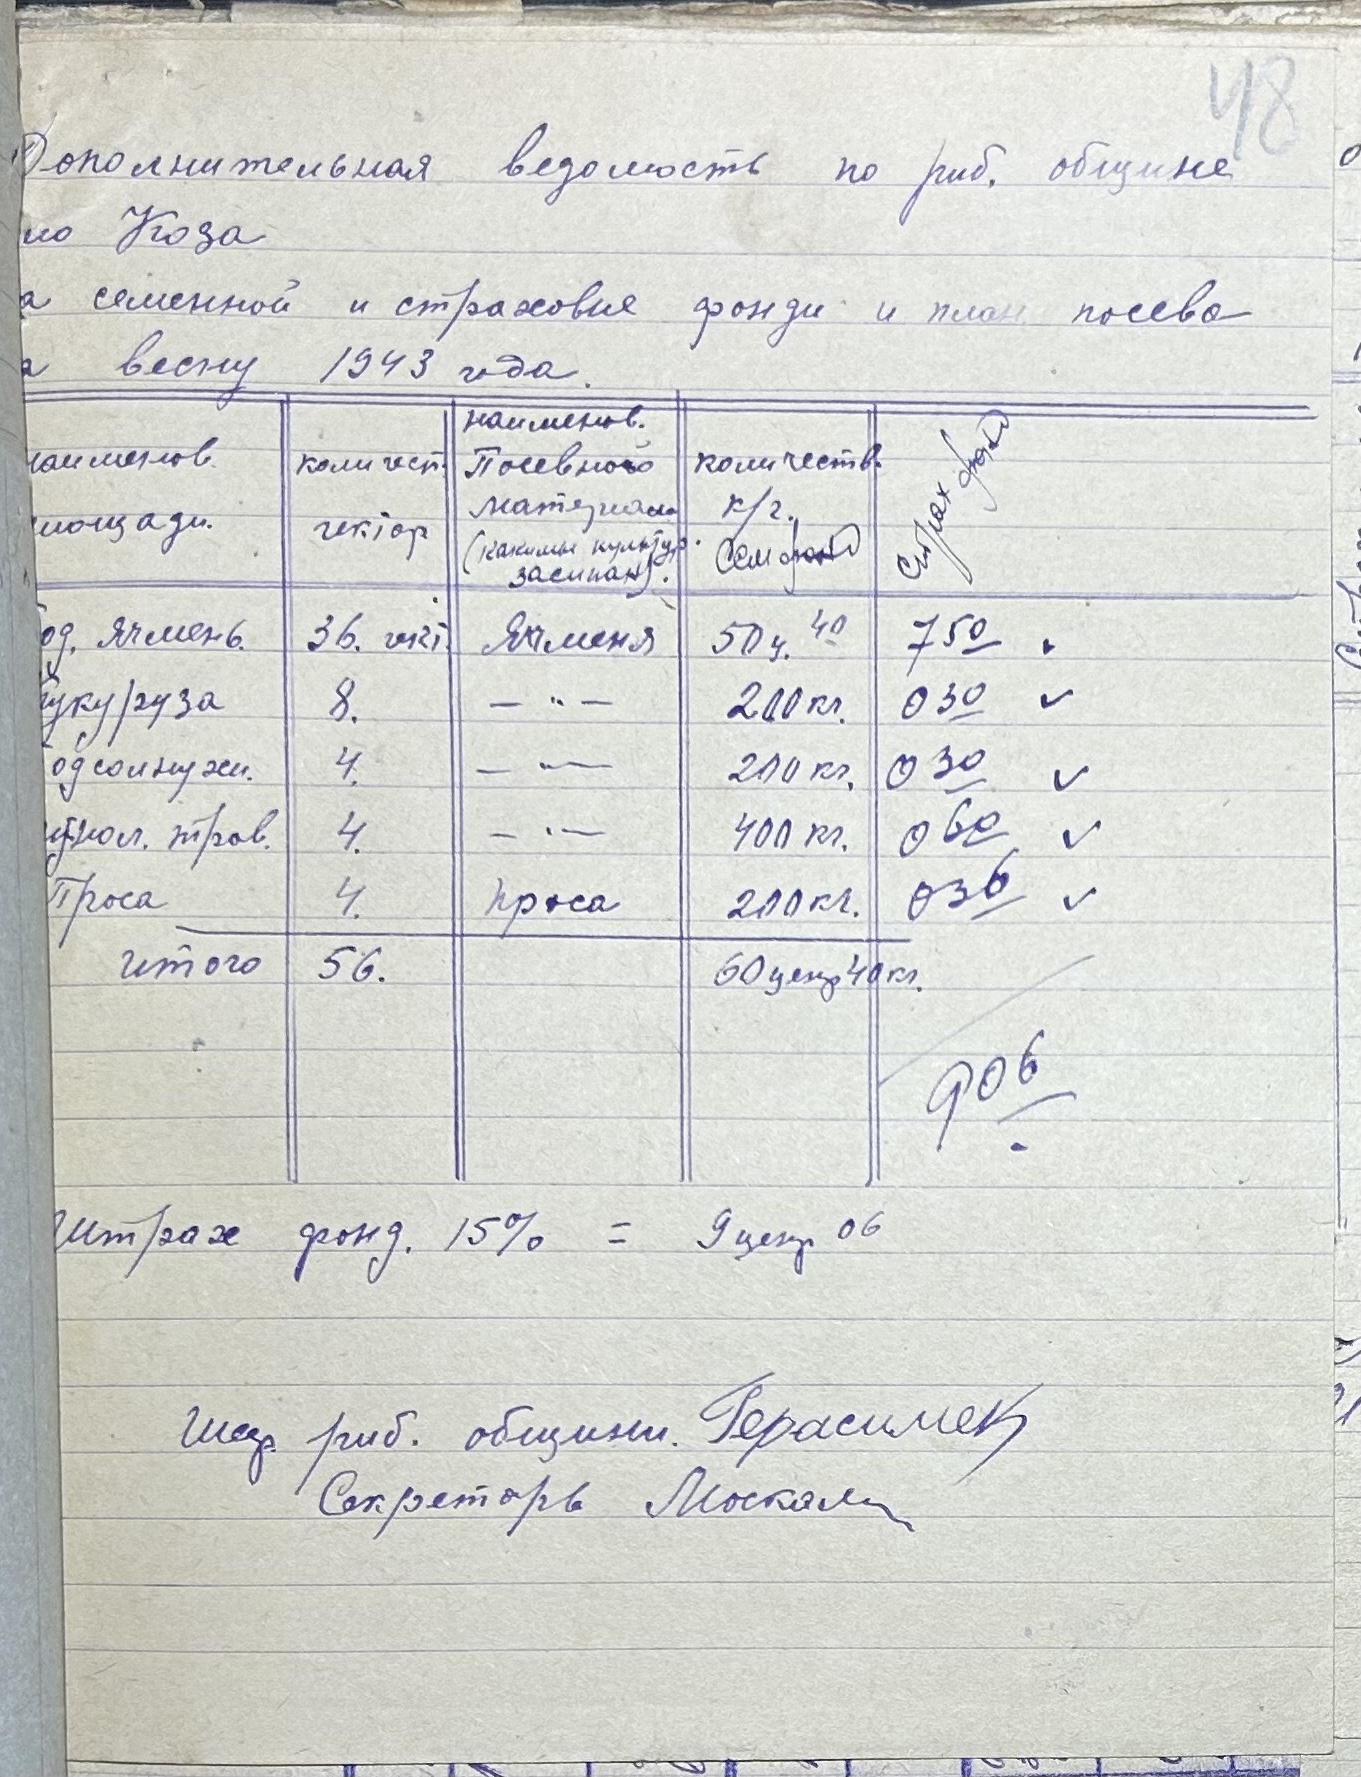 48
Дополнительная ведомость по риб. общине
Коза
семенной и страховие фонди и план посева
весну 1943 года.
наименов. площади. количест. гектор наименов. Посевного материала (какими культур. засипан). количеств. к/г. Семфонд Страх фонд
од. Ячмень. 36. гект. Ячменя 50 ц. 40 7 50
укуруза 8. — " — 200 кг. 0 30 ✓
одсолнужи. 4. — " — 200 кг. 0 30 ✓
трав. 4. — " — 400 кг. 0 60 ✓
Проса 4. проса 200 кг. 0 36 ✓
итого 56. 60 ценр 40 кг.
9 06
Штрах фонд. 15% = 9 ценр 06
риб. общини. Герасимек
Секреторь Москалец